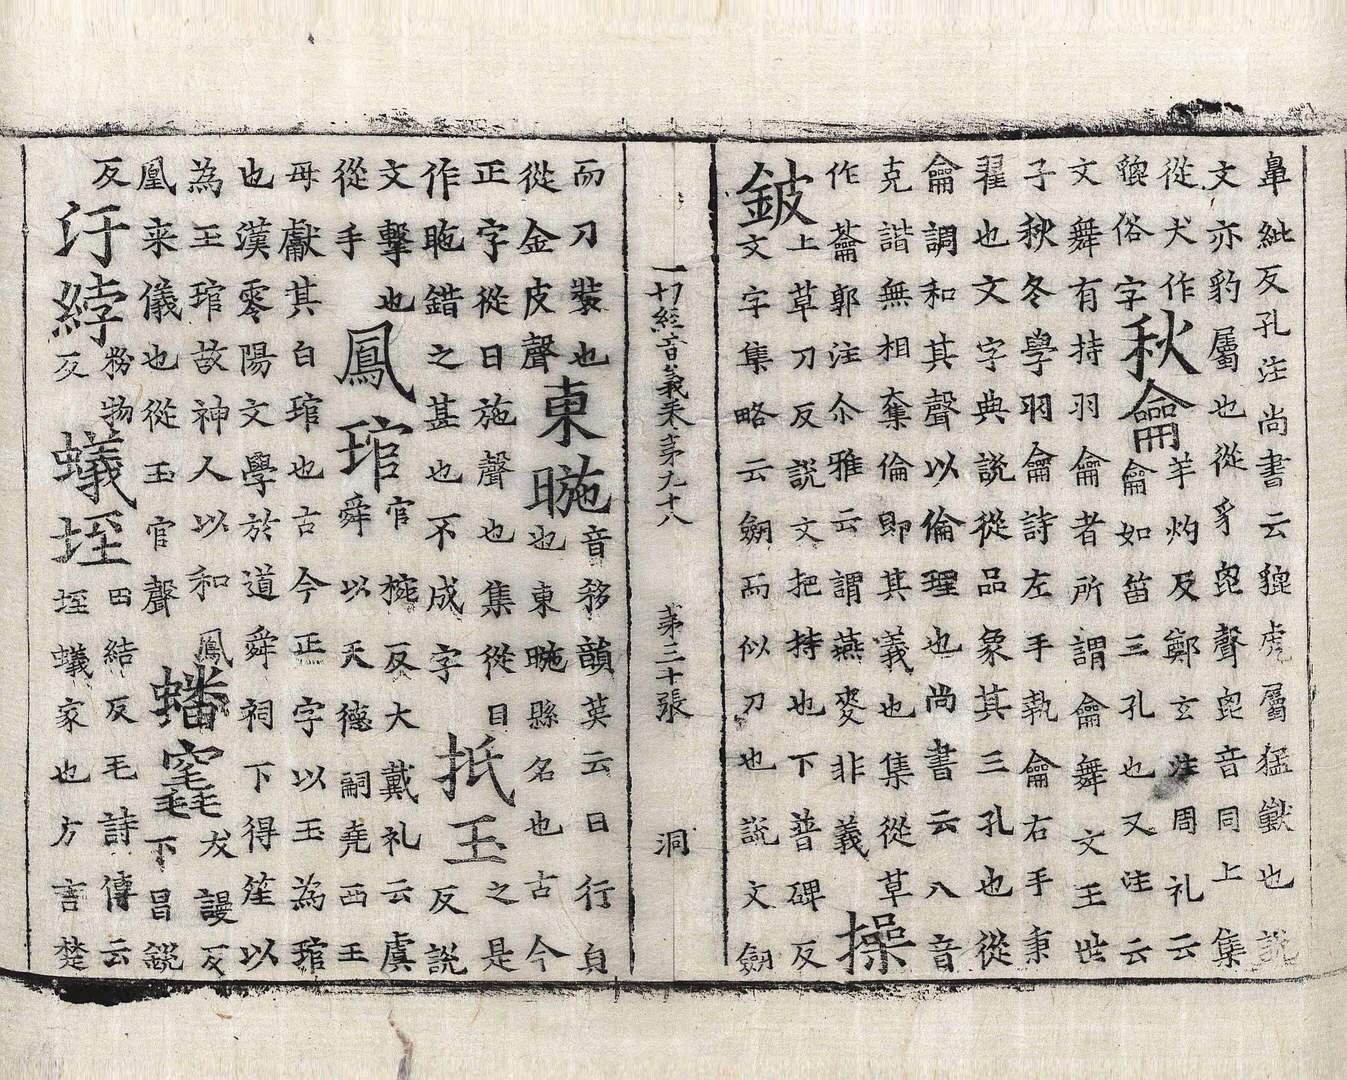 鼻紕反孔注尚書云貔虎屬猛獸也説
文亦豹屬也從豸毘聲毘音同上集
從犬作
俗字
秋籥
羊灼反鄭玄注周礼云
籥如笛三孔也又注云
文舞有持羽籥者所謂籥舞文王世
子秋冬學羽籥詩左手執籥右手秉
翟也文字典説從品象其三孔也從
籥調和其聲以倫理也尚書云八音
克諧無相奪倫即其義也集從草
作蘥郭注尒雅云謂燕麥非義
操
鈹
上草刀反説文把持也下普碑反
文字集略云劒而似刀也説文劒
一切經音義卷第九十八 第三十張 洞
而刀裝也
從金皮聲
東暆
音移韻英云日行㒵
也東暆縣名也古今
正字從日施聲也集從目
作䀢錯之甚也不成字
抵玉
之是
反説
文擊也
從手
鳳琯
官椀反大戴礼云虞
舜以天德嗣堯西王
母獻其白琯也古今正字以玉為琯
也漢零陽文學於道舜祠下得笙以
為玉琯故神人以和鳳
凰来儀也從玉官聲
蟠毳
犮謾反
下昌鋭
反
汙綍
粉物
反
蟻垤
田結反毛詩傳云
垤蟻冢也方言楚